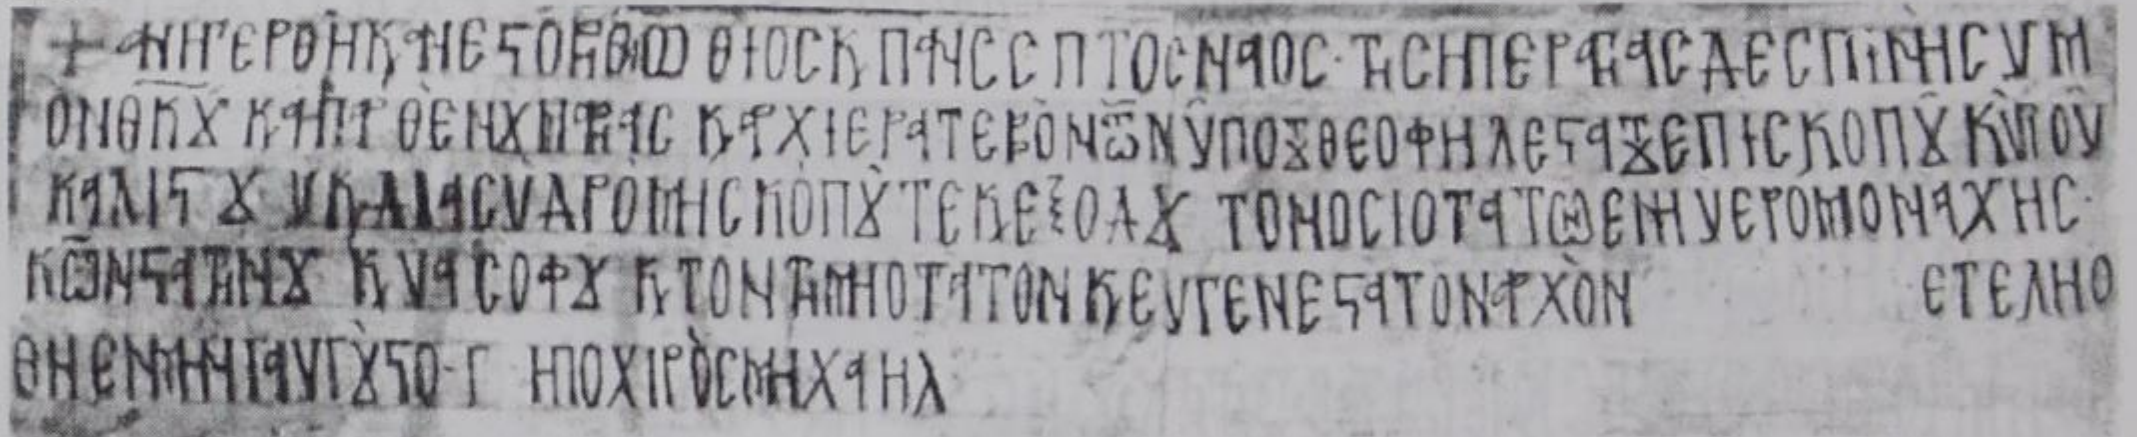 + ΑΝΗΓΕΡΘΗ Κ ΑΝΕϚΟΡΗΘΩ ΘΙΟΣ Κ ΠΑΝΣΕΠΤΟΣ ΝΑΟΣ ΤΗΣ ΗΠΕΡΑΓΗΑΣ ΔΕΣΠΙΝΗΣ ΥΜ
ΟΝ ΘΚΟΥ ΚΑΗΠΑΡΘΕΝΟΥ ΜΑΡΗΑΣ Κ ΑΡΧΙΕΡΑΤΕΒΟΝΤΩΝ ΥΠΟ ΤΟΥ ΘΕΟΦΗΛΕϚΑΤΟΥ ΕΠΙΣΚΟΠΟΥ ΚΥΠΟΥ
ΚΑΛΙϚΟΥ ΥΚΔΙΑΣ ΥΔΡΟΜΗΣ ΚΟΠΟΥ ΤΕ Κ ΕΞΟΔΟΥ ΤΟΝ ΟΣΙΟΤΑΤΩ ΕΜ ΥΕΡΟΜΟΝΑΧΗΣ
ΚΩΝϚΑΤΗΝΟΥ Κ ΥΑΣΟΦΟΥ Κ ΤΟΝ ΤΗΜΗΟΤΑΤΟΝ Κ ΕΥΓΕΝΕϚΑΤΟΝ ΑΡΧΟΝ ΕΤΕΛΗΟ
ΘΗ ΕΝ ΜΗΝΗ ΑΥΓΟΥϚΟ Γ ΗΠΟ ΧΙΡΟΣ ΜΗΧΑΗΛ